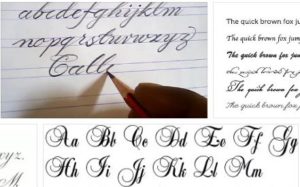 abcdefghijklm
nopqrstuvwxyz
Calli
The quick brown fox jum
The quick brown fox jump
The quick brown fox jumps
The quick brown fox jump
The quick brown fox
The quick brown fox jump
xyz.
Aa Bb Cc Dd Ee Ff Gg
Hh Ii Jj Kk Ll Mm